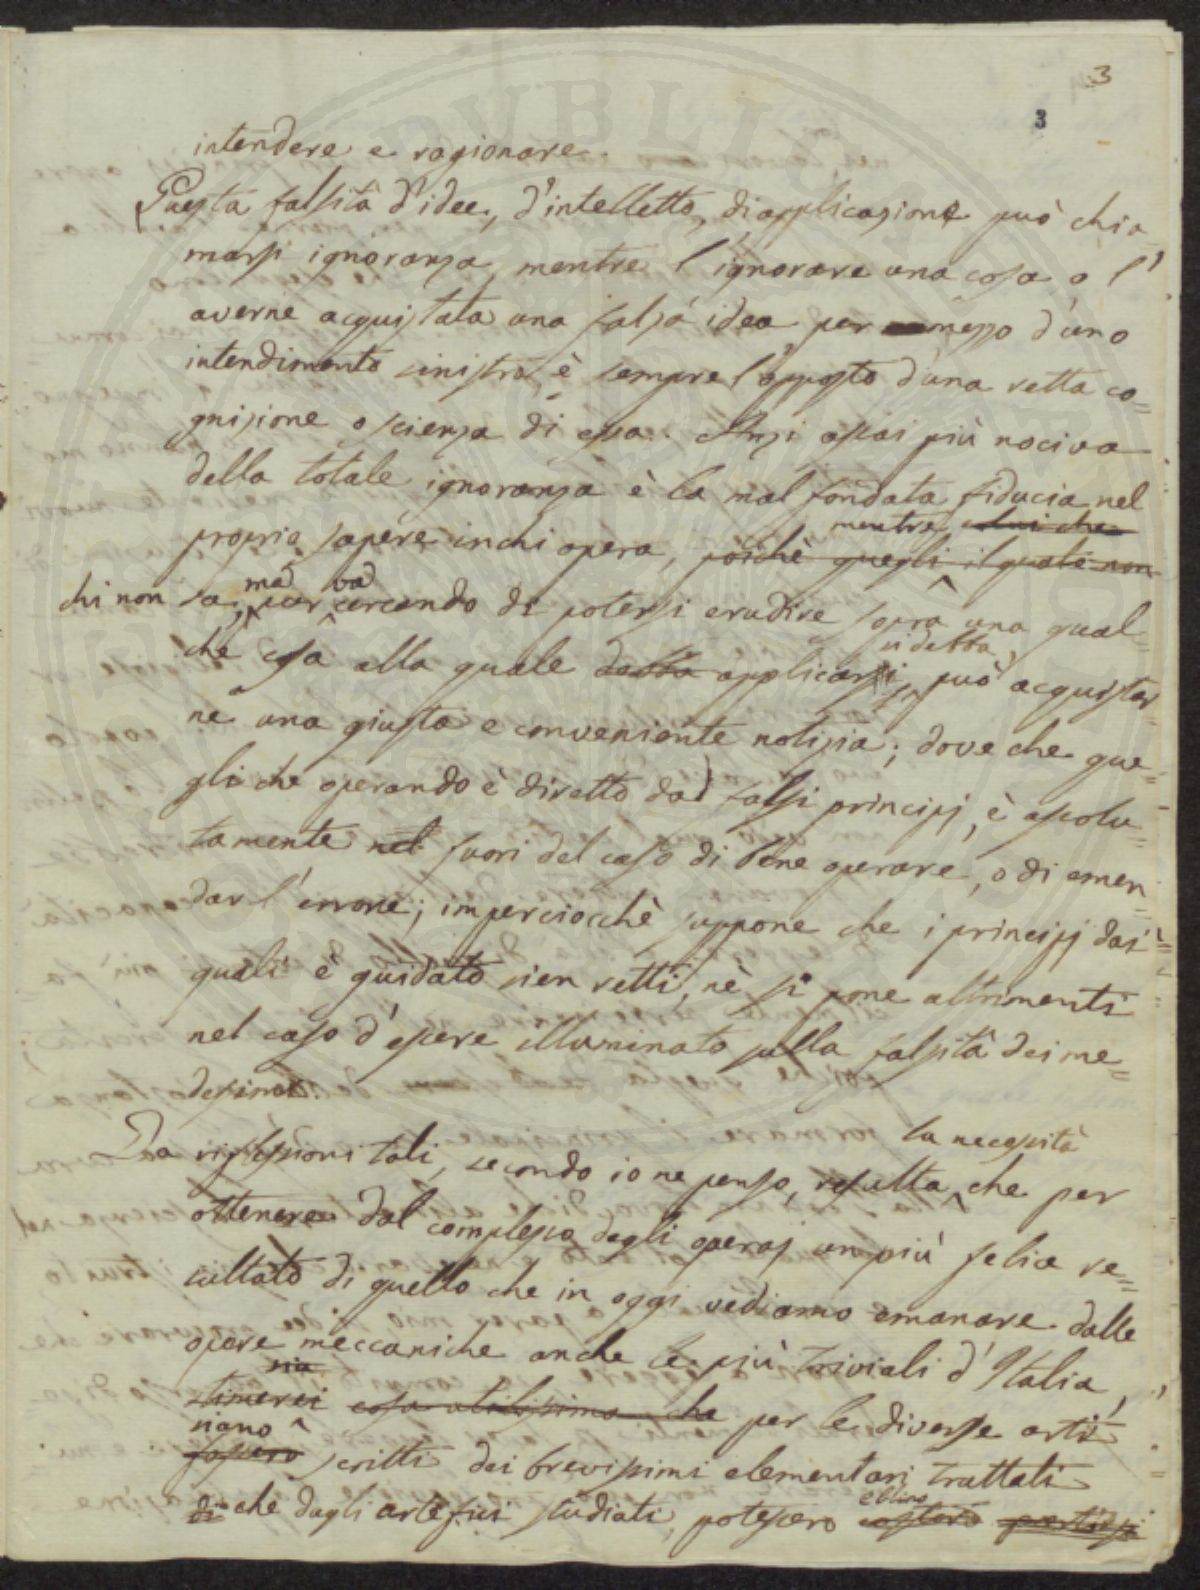 3
3
intendere e ragionare.
Questa falsità d'idee, d'intelletto, di applicazione può chia=
marsi ignoranza, mentre l'ignorare una cosa o l'
averne acquistata una falsa idea, per mezzo d'uno
intendimento sinistro, è sempre l'opposto d'una retta co=
gnizione o scienza di essa. Anzi assai più nociva
della totale ignoranza è la mal fondata fiducia nel
mentre, colui che
proprio sapere in chi opera, poichè quegli il quale non
ma va
chi non sa, per cercando di potersi erudire sopra una qual=
si detta,
che cosa alla quale debba applicarsi, può acquistar=
ne una giusta e conveniente notizia; dove che que=
gli che operando è diretto dai falsi principj, è assolu=
tamente nel fuori del caso di bene operare, o di emen=
dar l'errore; imperciocchè suppone che i principj dai
quali è guidato sien retti, nè si pone altrimenti
nel caso d'essere illuminato sulla falsità dei me=
desimi.
la necessità
Da riflessioni tali, secondo io ne penso, resulta che per
ottenere dal complesso degli operaj un più felice re=
sultato di quello che in oggi vediamo emanare dalle
opere meccaniche anche le più triviali d'Italia,
sia
stimerei cosa utilissima che per le diverse arti
siano
fossero scritti dei brevissimi elementari trattati
ebbino
di che dagli artefici studiati, potessero costoro